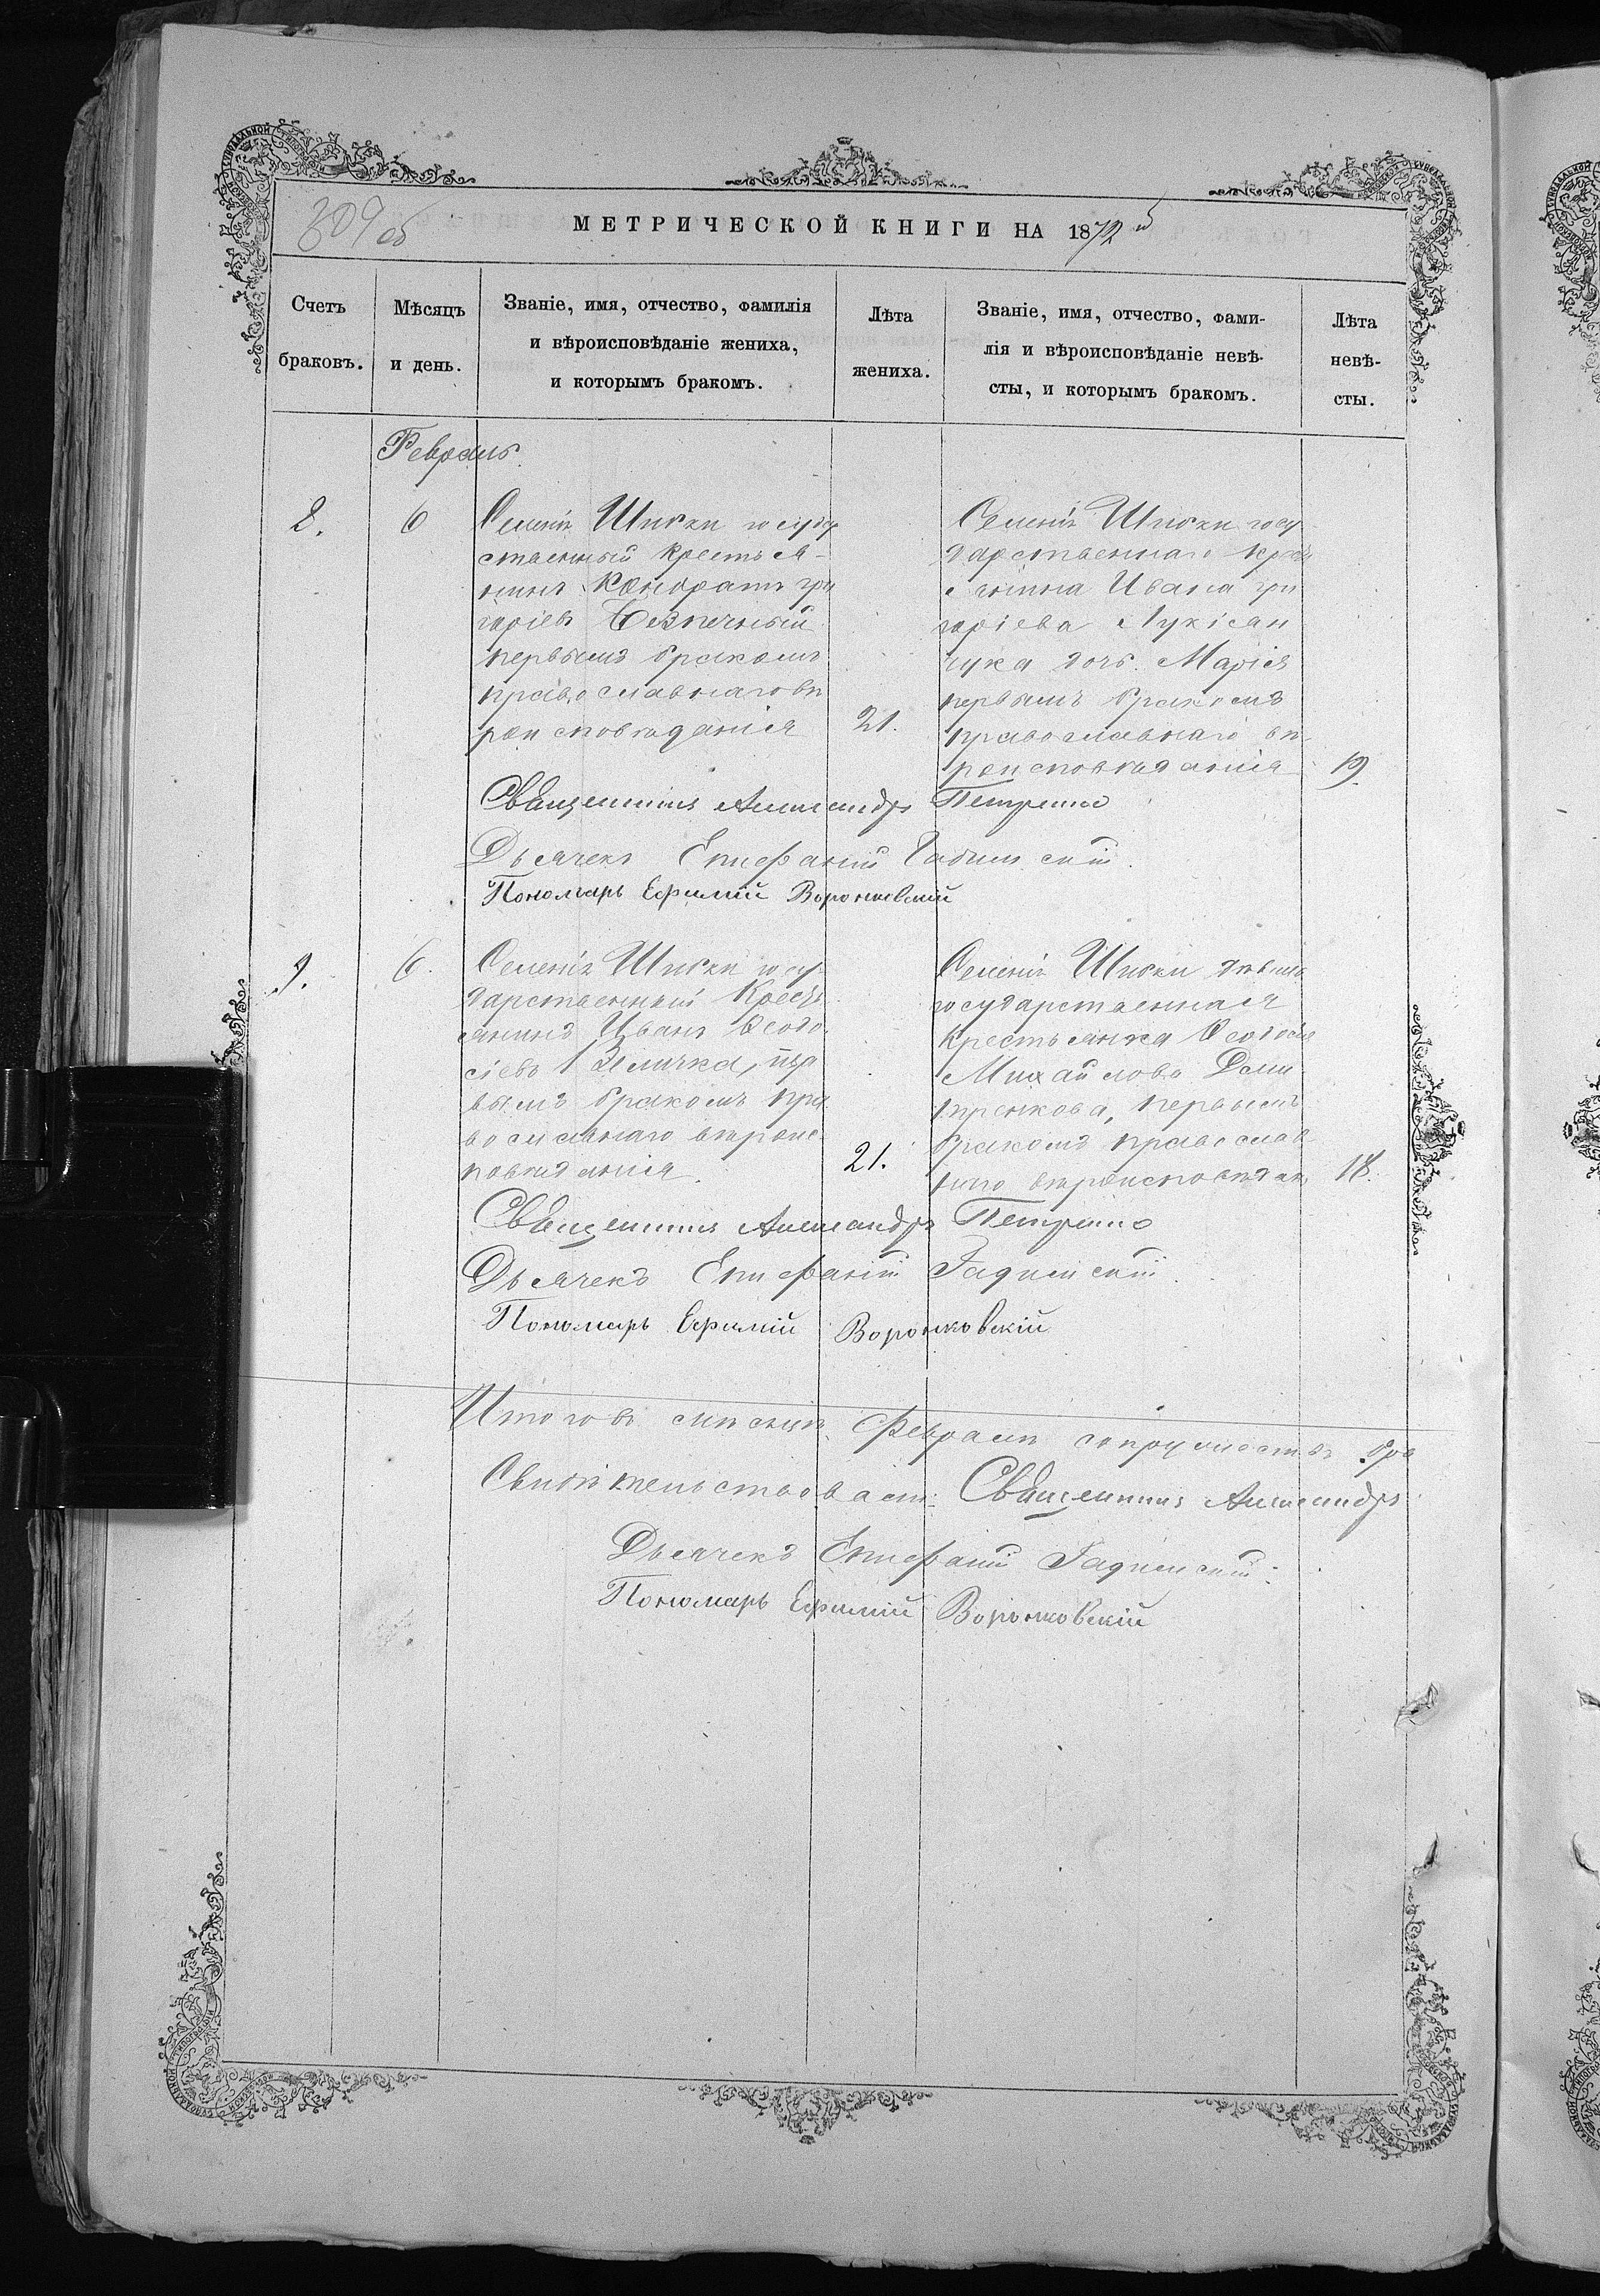 309 об
МЕТРИЧЕСКОЙ КНИГИ НА 1872 й
Счетъ браковъ.
Мѣсяцъ и день.
Званіе, имя, отчество, фамилія
и вѣроисповѣданіе жениха,
и которымъ бракомъ.
Лѣта жениха.
Званіе, имя, отчество, фами-
лія и вѣроисповѣданіе невѣ-
сты, и которымъ бракомъ.
Лѣта невѣ-
сты.
Февраль
6
Селенія государ
ственный крестья-
нинъ Кондратъ Гри
горіевъ Безпечный
первымъ бракомъ
православнаго вѣ
роисповѣданія
21.
Селенія госу
дарственнаго крес
янина Ивана Гри
горіева
дочь Марія
первымъ бракомъ
православнаго вѣ
роисповѣданія
19.
Священникъ Александръ
Дьячекъ Епифаній
Пономарь Ефимій Воронковскій
9.
6.
Селенія госу
дарственный Кресть
янинъ Иванъ Ѳеодо
сіевъ пер
вымъ бракомъ пра
вославнаго вѣроис
повѣданія.
21.
Селенія дѣвица
государственная
крестьянка Ѳеодосія
Михайлова Дми
тренкова, первымъ
бракомъ православ
наго вѣроисповѣдан
18.
Священникъ Александръ
Дьячекъ Епифаній
Пономарь Ефимій Воронковскій
Итого въ мѣсяцѣ Февралѣ бра
Свидѣтельствовали: Священникъ Александръ
Дьячекъ Епифаній
Пономарь Ефимій Воронковскій